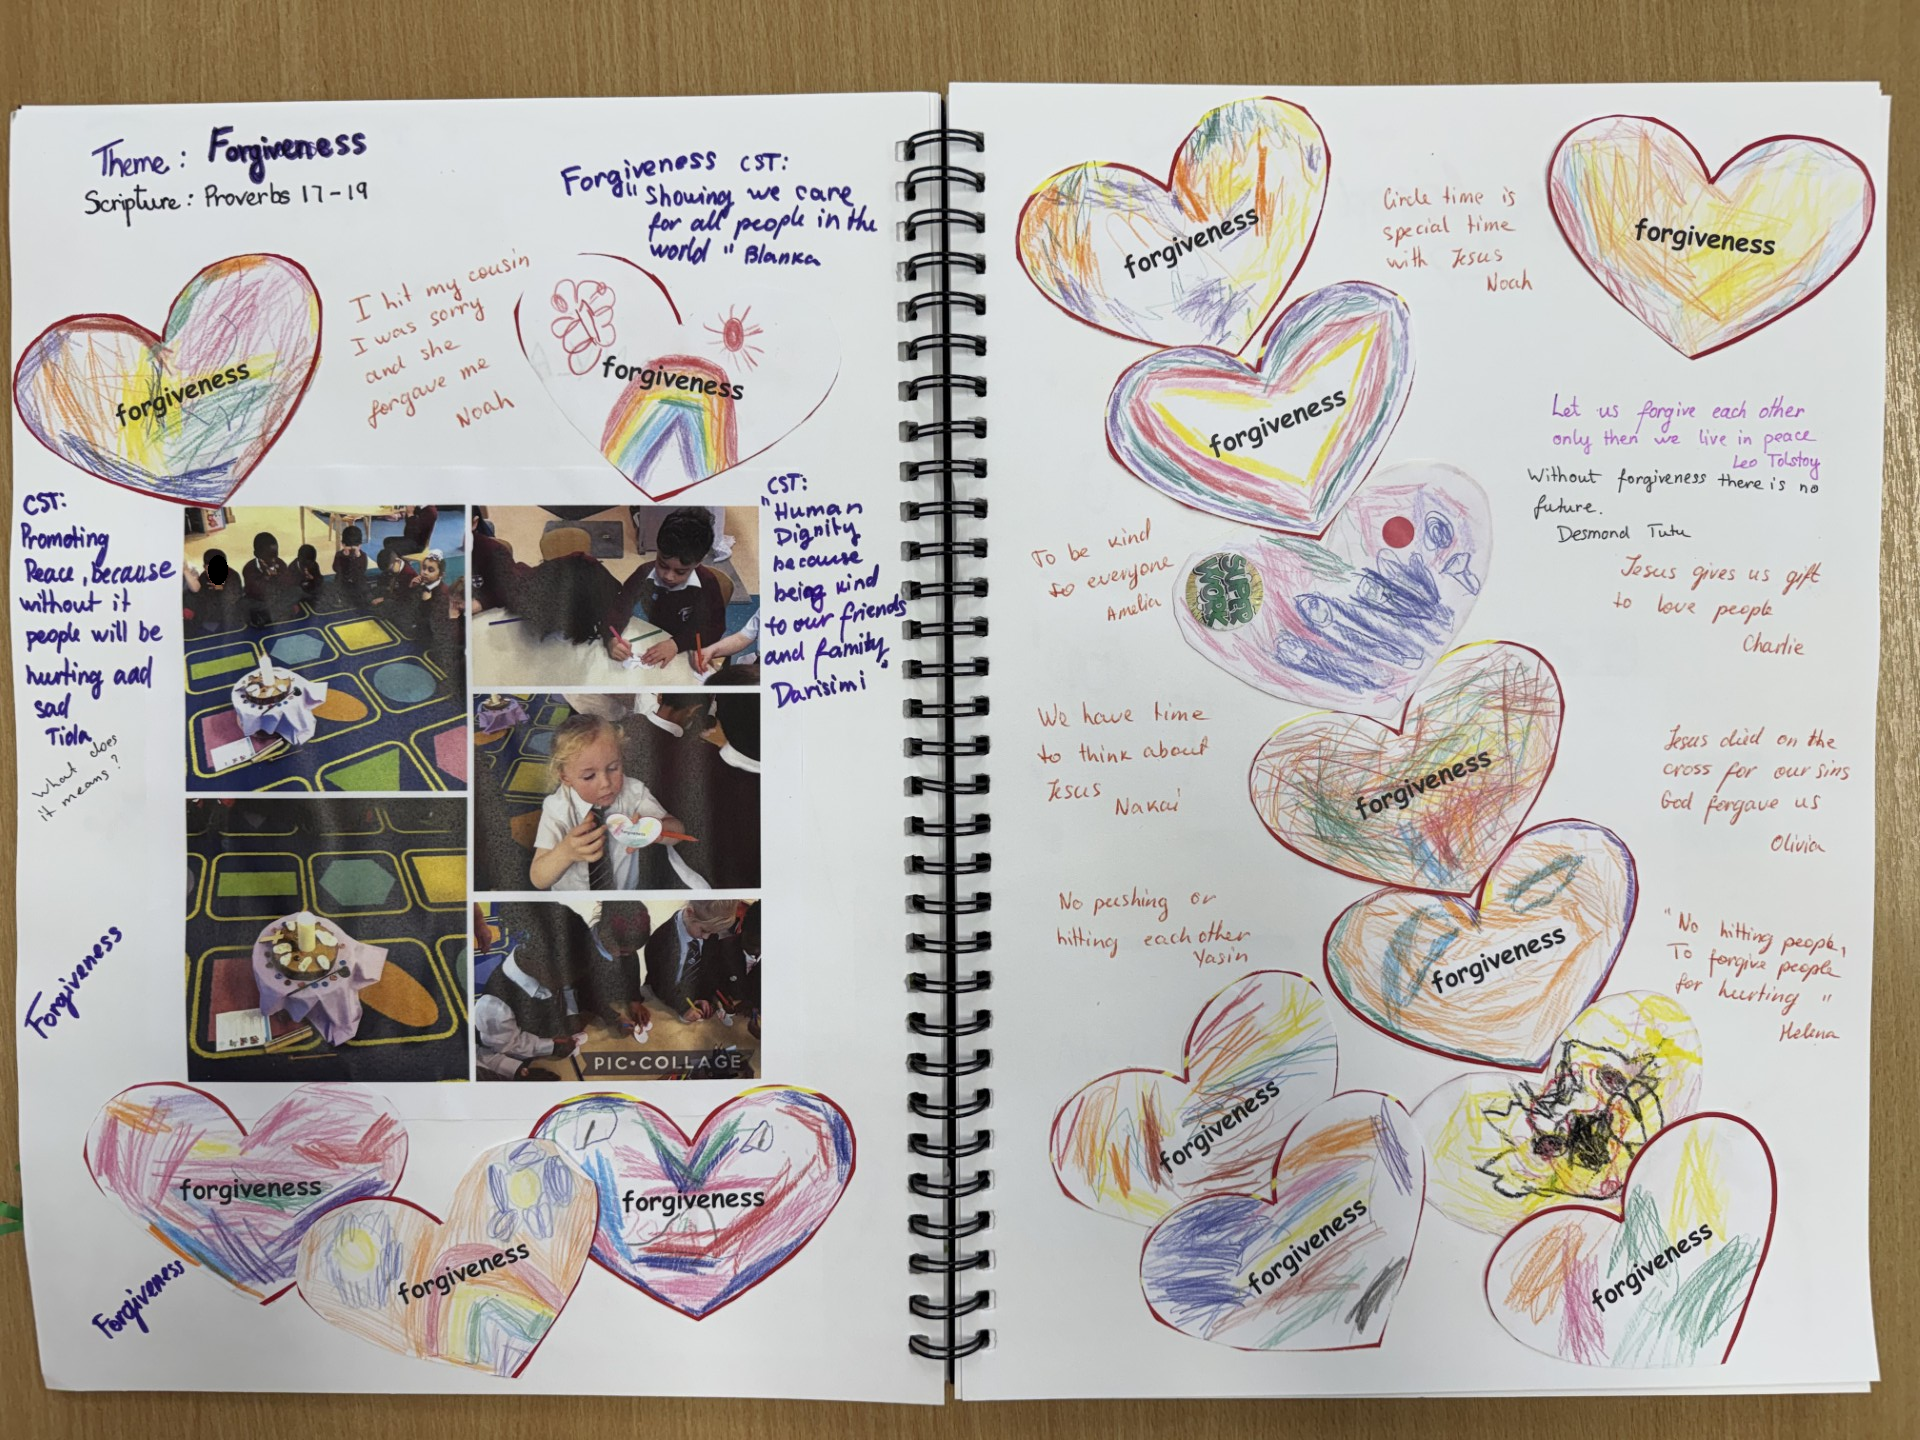 Theme: Forgiveness
Scripture: Proverbs 17-19
Forgiveness CST:
"Showing we care
for all people in the
world" Blanka
I hit my cousin
I was sorry
and she
forgave me
Noah
forgiveness
forgiveness
CST:
Promoting
Peace, because
without it
people will be
hurting aad
sad
Tiola
What does
it means?
CST:
"Human
Dignity
because
being kind
to our friends
and family"
Darisimi
PIC•COLLAGE
Forgiveness
Forgiveness
forgiveness
forgiveness
forgiveness
forgiveness
Circle time is
special time
with Jesus
Noah
forgiveness
forgiveness
Let us forgive each other
only then we live in peace
Leo Tolstoy
Without forgiveness there is no
future.
Desmond Tutu
To be kind
so everyone
Amelia
SUPER
WORK
Jesus gives us gift
to love people
Charlie
We have time
to think about
Jesus
Nakai
forgiveness
Jesus died on the
cross for our sins
God forgave us
Olivia
No pushing or
hitting each other
Yasin
forgiveness
"No hitting people,
To forgive people
for hurting"
Helena
forgiveness
forgiveness
forgiveness